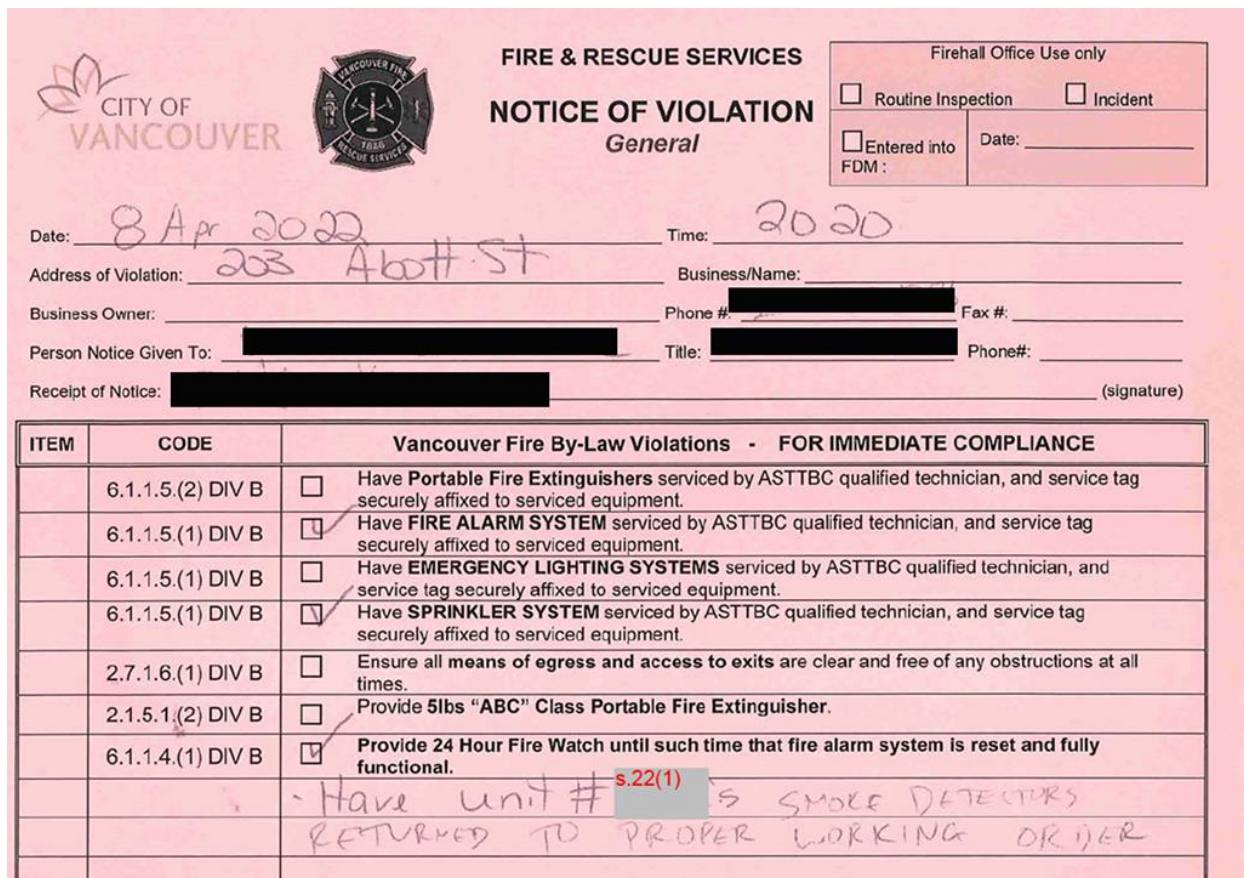 FIRE & RESCUE SERVICES
NOTICE OF VIOLATION
General
CITY OF
VANCOUVER
VANCOUVER FIRE
1886
RESCUE SERVICES
Firehall Office Use only
Routine Inspection Incident
Entered into FDM : Date:
Date: 8 Apr 2022 Time: 2020
Address of Violation: 203 Abott St Business/Name:
Business Owner: Phone #: Fax #:
Person Notice Given To: Title: Phone#:
Receipt of Notice: (signature)
ITEM CODE Vancouver Fire By-Law Violations - FOR IMMEDIATE COMPLIANCE
6.1.1.5.(2) DIV B Have Portable Fire Extinguishers serviced by ASTTBC qualified technician, and service tag
securely affixed to serviced equipment.
6.1.1.5.(1) DIV B Have FIRE ALARM SYSTEM serviced by ASTTBC qualified technician, and service tag
securely affixed to serviced equipment.
6.1.1.5.(1) DIV B Have EMERGENCY LIGHTING SYSTEMS serviced by ASTTBC qualified technician, and
service tag securely affixed to serviced equipment.
6.1.1.5.(1) DIV B Have SPRINKLER SYSTEM serviced by ASTTBC qualified technician, and service tag
securely affixed to serviced equipment.
2.7.1.6.(1) DIV B Ensure all means of egress and access to exits are clear and free of any obstructions at all
times.
2.1.5.1.(2) DIV B Provide 5lbs “ABC” Class Portable Fire Extinguisher.
6.1.1.4.(1) DIV B Provide 24 Hour Fire Watch until such time that fire alarm system is reset and fully
functional.
- Have unit # s.22(1) 's SMOKE DETECTORS
RETURNED TO PROPER WORKING ORDER